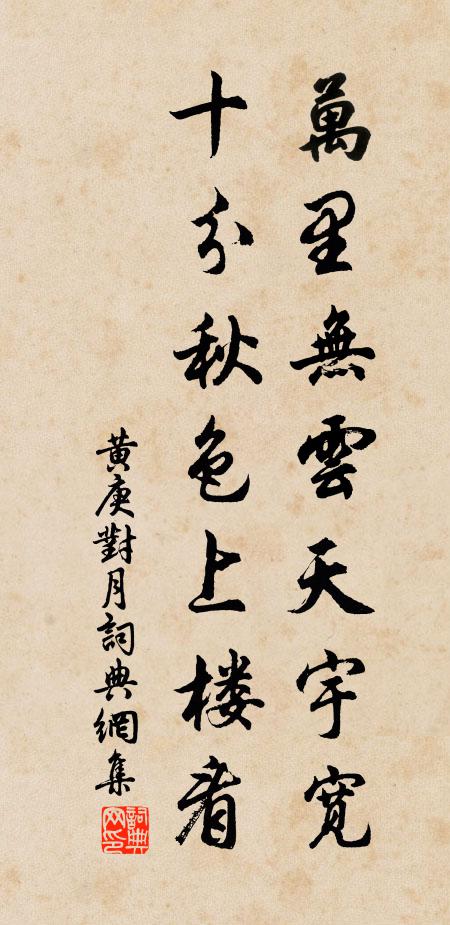 萬里無雲天宇寬
十分秋色上楼看
黄庚對月詞典網集
詞典網印